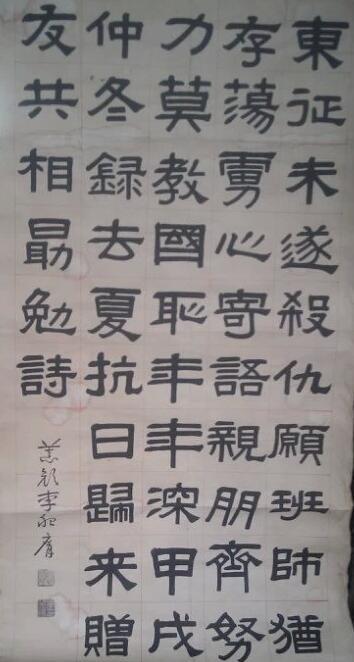 東征未遂殺仇願班師猶
存蕩虜心寄語親朋齊努
力莫教國恥年年深甲戌
仲冬録去夏抗日歸来贈
友共相勗勉詩
李